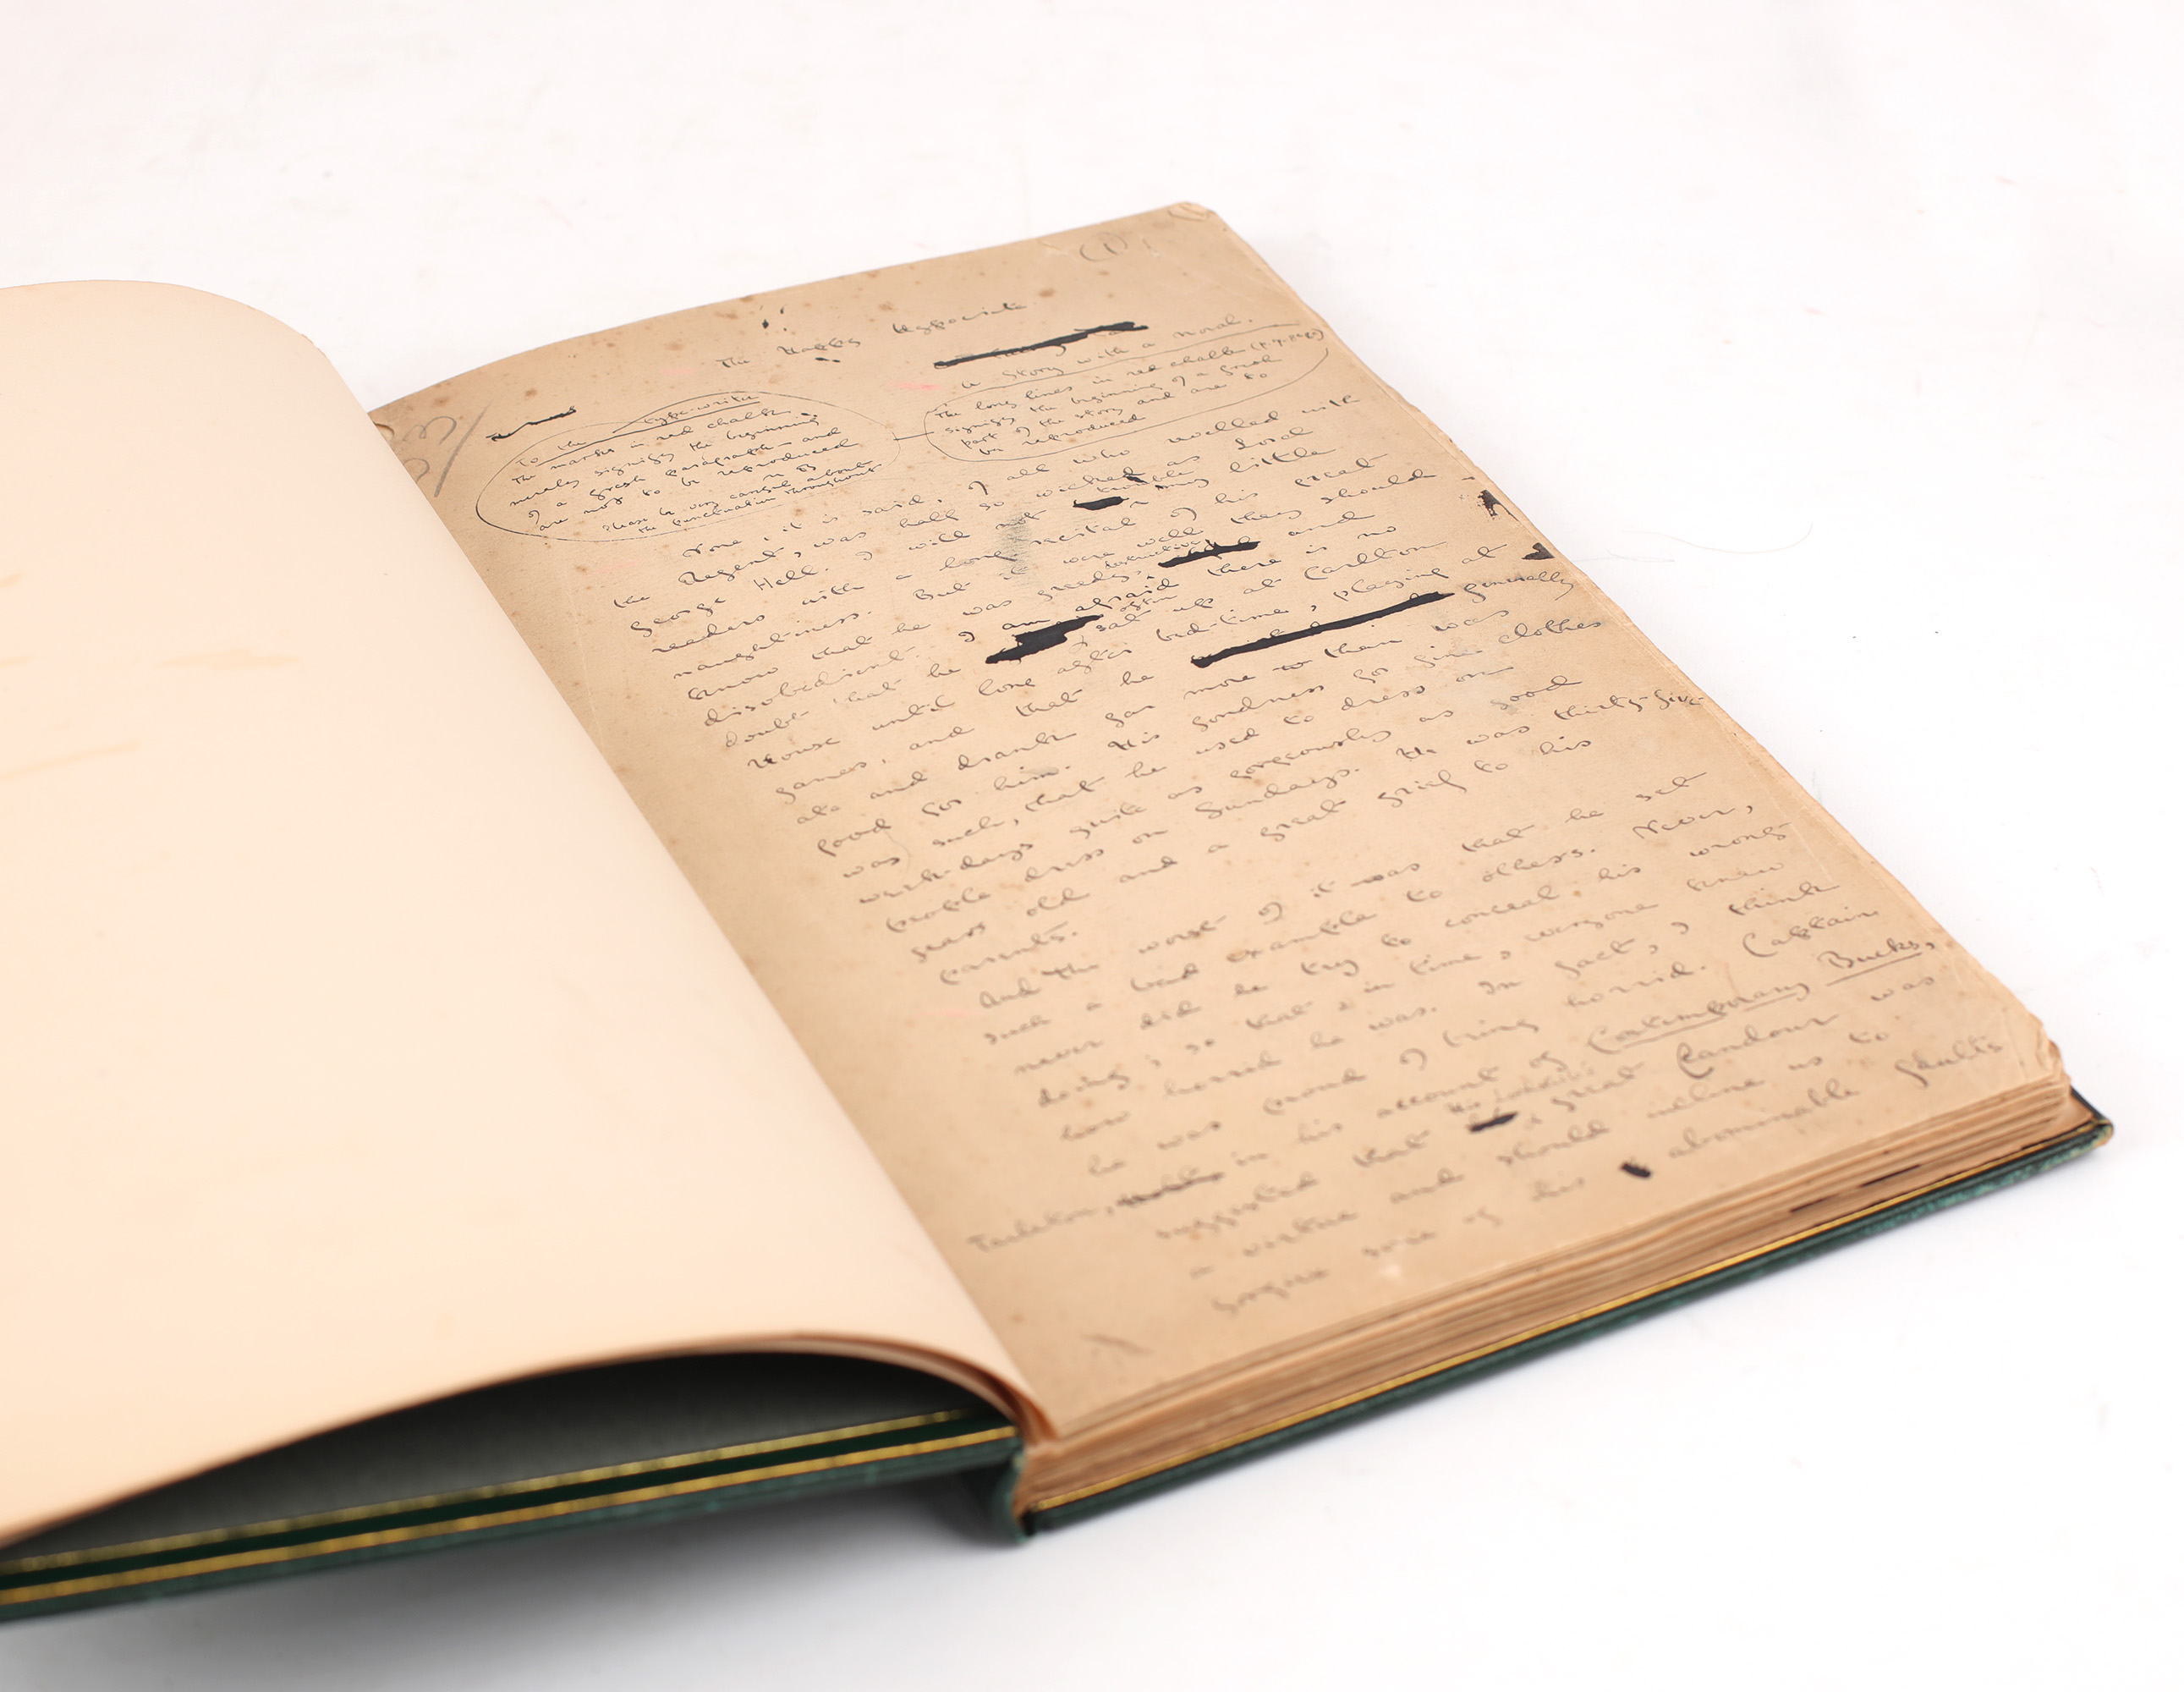 (1)
The Happy Hypocrite
A Story with a moral.
To the type-writer
The marks in red chalk
merely signify the beginning
of a fresh paragraph and
are not to be reproduced
Please be very careful about
the punctuation throughout
The long lines in red chalk
signify the beginning of a fresh
part of the story and are to
be reproduced
None, it is said, of all who revelled with
the Regent, was half so wicked as Lord
George Hell. I will not trouble my little
readers with a long recital of his great
naughtiness. But it were well they should
know that he was greedy, destructive, and
disobedient. I am afraid there is no
doubt that he often sat up at Carlton
House until long after bed-time, playing at
games, and that he generally
ate and drank far more than was
good for him. His fondness for fine clothes
was such, that he used to dress on
week-days quite as gorgeously as good
people dress on Sundays. He was thirty-five
years old and a great grief to his
parents.
And the worst of it was that he set
such a bad example to others. Never,
never did he try to conceal his wrong-
doing; so that, in time, everyone knew
how horrid he was. In fact, I think
he was proud of being horrid. Captain
Tarleton, in his account of Contemporary Bucks,
suggested that his Lordship's great Candour was
a virtue and should incline us to
forgive some of his abominable faults